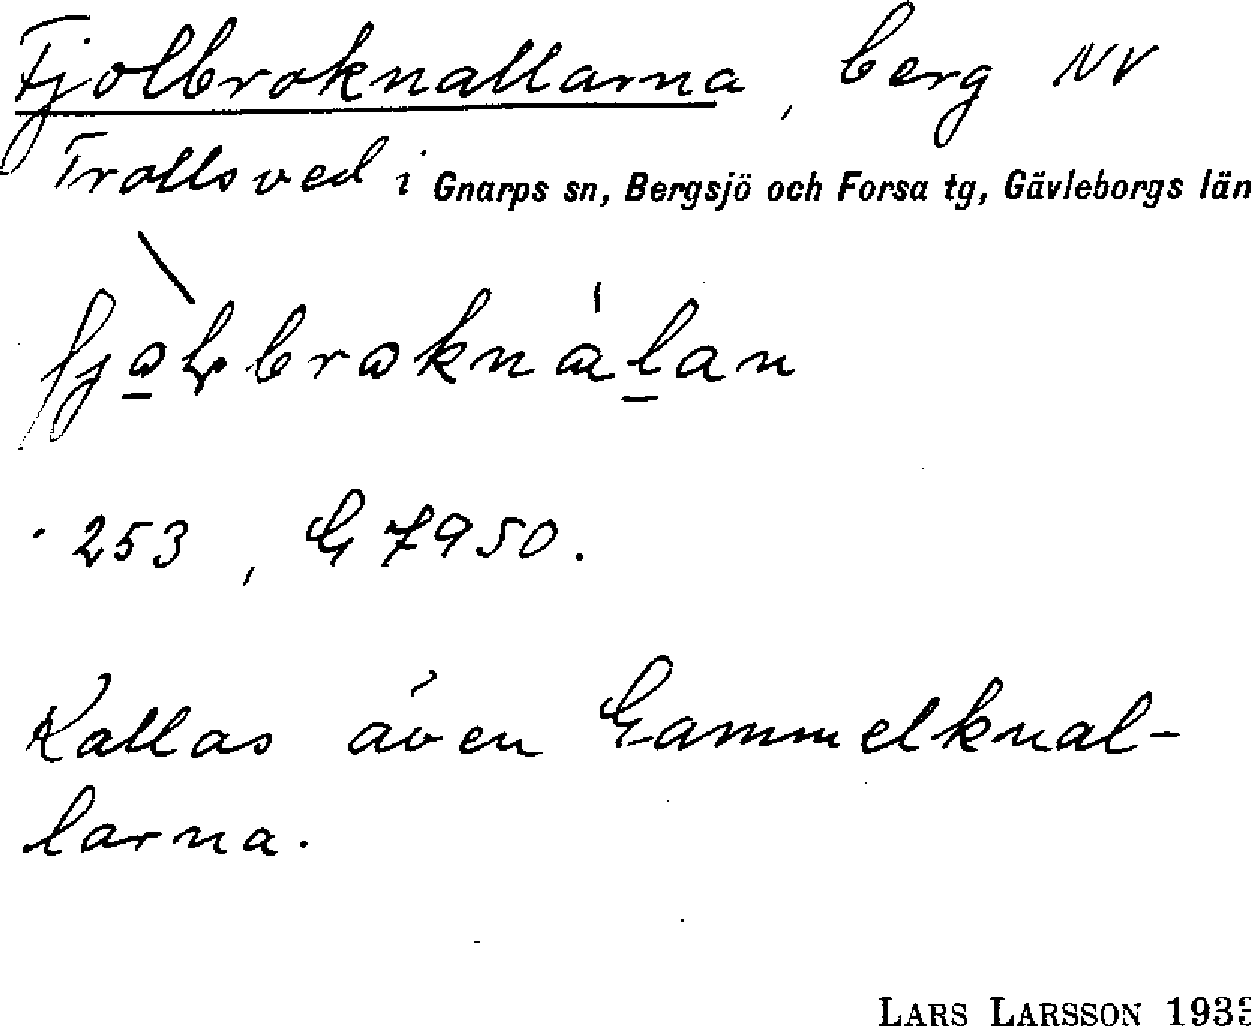 Fjolbroknallarna, berg NV
Trollsved i Gnarps sn, Bergsjö och Forsa tg, Gävleborgs län
· 253, G 7950.
Kallas även Gammelknal-
larna.
LARS LARSSON 193